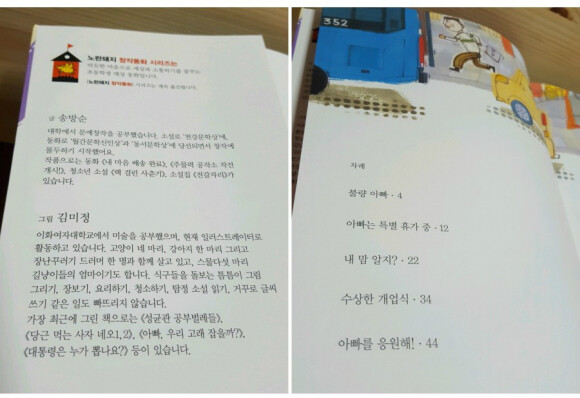 노란돼지 창작동화 시리즈는
초등학생 대상 동화입니다.
노란돼지 창작동화 시리즈는 계속 출간됩니다.
글 송방순
대학에서 문예창작을 공부했습니다. 소설로 '천강문학상'에,
동화로 '월간문학신인상'과 '동서문학상'에 당선되면서 창작에
몰두하기 시작했어요.
작품으로는 동화 《내 마음 배송 완료》, 《주플력 공작소 작전
개시!》, 청소년 소설 《핵 걸린 사춘기》, 소설집 《천길자리》가
있습니다.
그림 김미정
이화여자대학교에서 미술을 공부했으며, 현재 일러스트레이터로
활동하고 있습니다. 고양이 네 마리, 강아지 한 마리 그리고
장난꾸러기 드러머 한 명과 함께 살고 있고, 스물다섯 마리
길냥이들의 엄마이기도 합니다. 식구들을 돌보는 틈틈이 그림
그리기, 장보기, 요리하기, 청소하기, 탐정 소설 읽기, 거꾸로 글씨
쓰기 같은 일도 빠뜨리지 않습니다.
가장 최근에 그린 책으로는 《성균관 공부벌레들》,
《당근 먹는 사자 네오1,2》, 《아빠, 우리 고래 잡을까?》,
《대통령은 누가 뽑나요?》 등이 있습니다.
352
차례
불량 아빠 · 4
아빠는 특별 휴가 중 · 12
내 맘 알지? · 22
수상한 개업식 · 34
아빠를 응원해! · 44